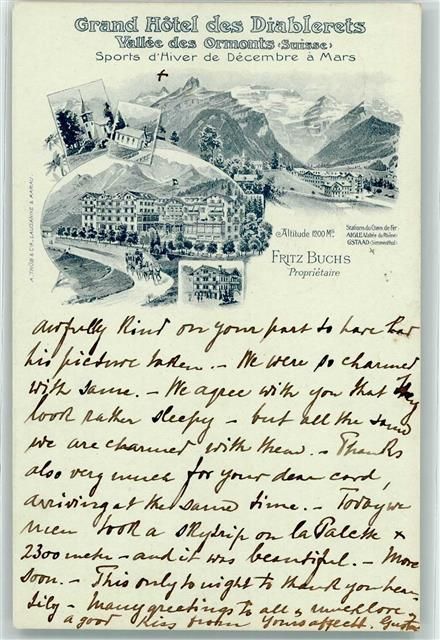 Grand Hôtel des Diablerets
Vallée des Ormonts (Suisse)
Sports d'Hiver de Décembre à Mars
A. TRÜB & Cie, LAUSANNE & AARAU.
Altitude 1200 M.
Stations du Chem. de Fer
AIGLE (Vallée du Rhône)
GSTAAD (Simmenthal)
FRITZ BUCHS
Propriétaire
awfully kind on your part to have had
his picture taken. - We were so charmed
with same. - We agree with you that they
look rather sleepy - but all the same
we are charmed with them. - Thanks
also very much for your dear card,
arriving at the same time. - Today we
men took a skitrip on la Palette x
2300 metr - and it was beautiful. - More
soon. - This only to night to thank you dear
Lily - Many greetings to all, & much love &
a good kiss from Yours affect. Gustav